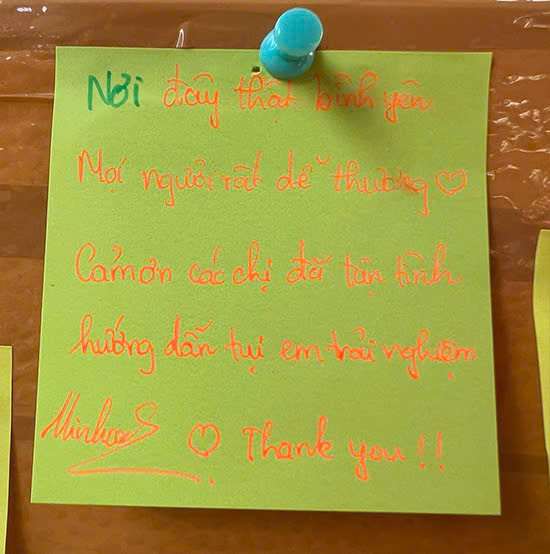 Nơi đây thật bình yên
Mọi người rất dễ thương ♡
Cảm ơn các chị đã tận tình
hướng dẫn tụi em trải nghiệm
♡ Thank you!!